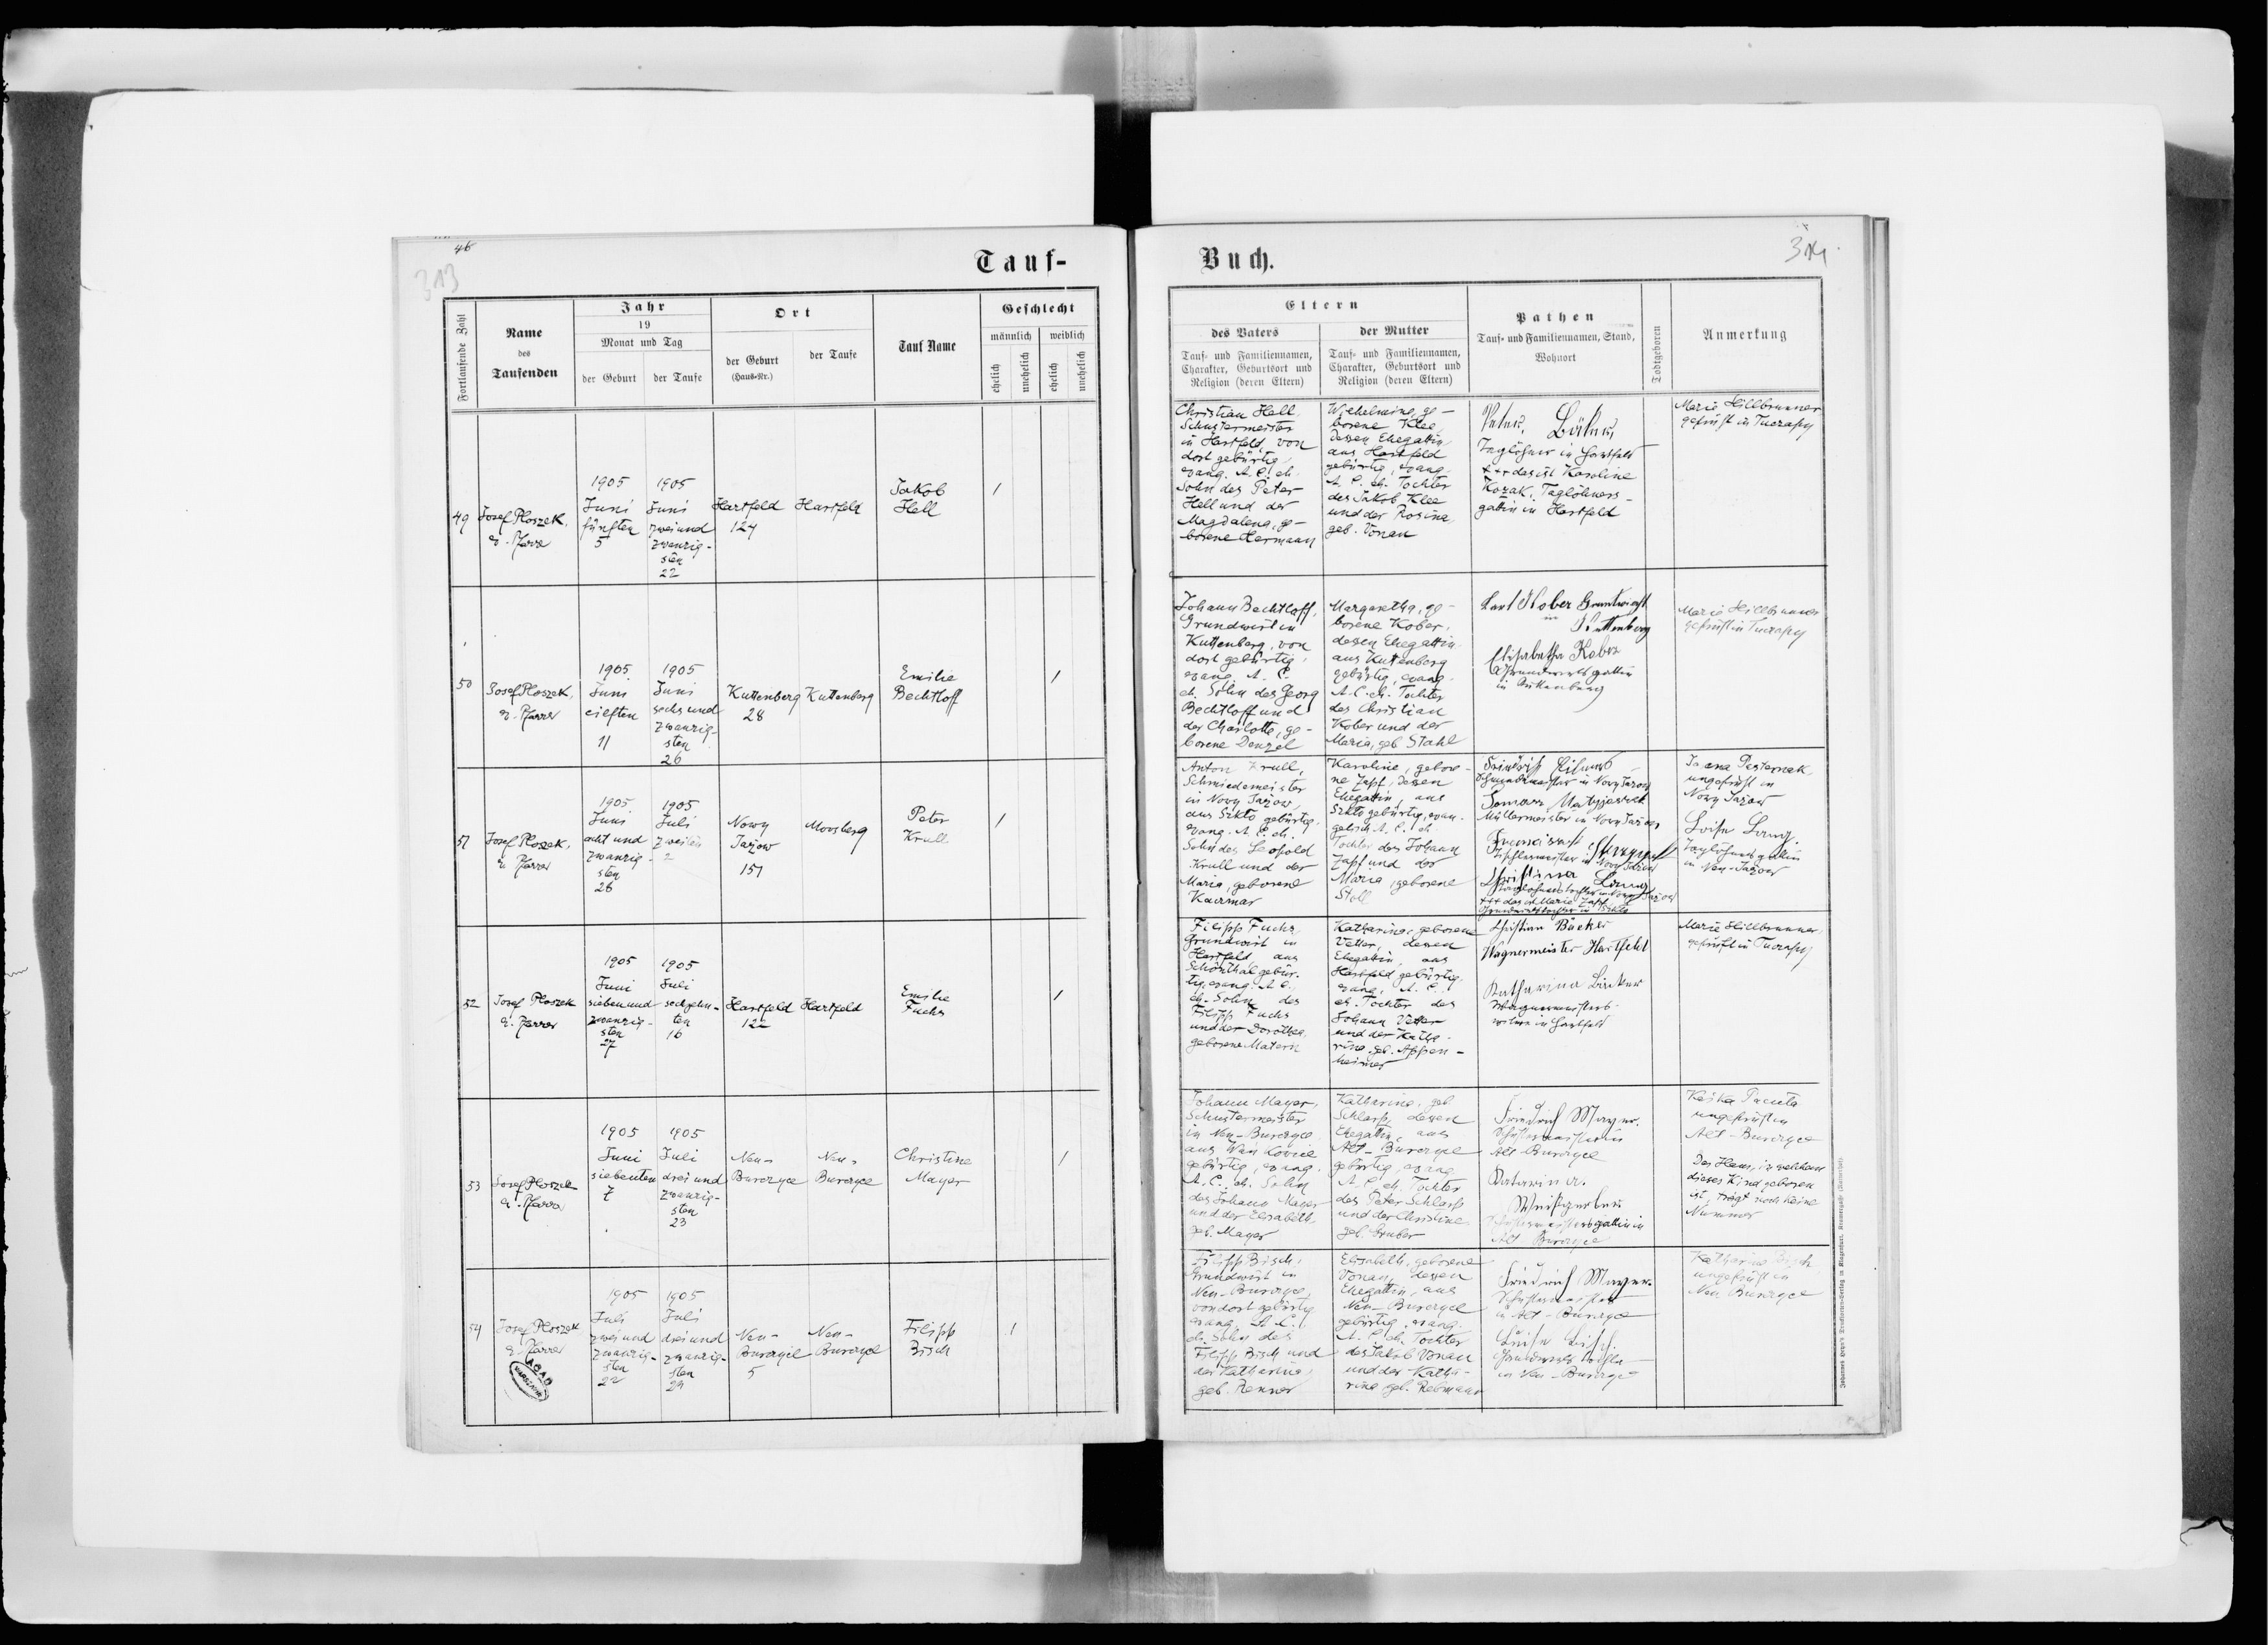 46
313
Tauf-
Fortlaufende Zahl
Name
des
Taufenden
Jahr
19
Monat und Tag
der Geburt
der Taufe
Ort
der Geburt
(Haus-Nr.)
der Taufe
Tauf Name
Geschlecht
männlich
weiblich
ehelich
unehelich
ehelich
unehelich
49
Josef Ploszek,
1905
Juni
fünften
5
1905
Juni
zwei und
zwanzig-
sten
22
Hartfeld
124
Hartfeld
Jakob
Hell
1
50
Josef Ploszek,
1905
Juni
eilften
11
1905
Juni
sechs und
zwanzig-
sten
26
Kuttenberg
28
Kuttenberg
Emilie
Bechtloff
1
51
Josef Ploszek,
1905
Juni
acht und
zwanzig-
sten
28
1905
Juli
zweiten
2
Nowy
Jażow
151
Moosberg
Peter
Krull
1
52
Josef Ploszek
1905
Juni
sieben und
zwanzig-
sten
27
1905
Juli
sechzehn-
ten
16
Hartfeld
122
Hartfeld
Emilie
Fuchs
1
53
Josef Ploszek
1905
Juni
siebenten
7
1905
Juli
drei und
zwanzig-
sten
23
Neu-
Burczyce
Neu-
Burczyce
Christine
Mayer
1
54
Josef Ploszek
1905
Juli
zwei und
zwanzig-
sten
22
1905
Juli
drei und
zwanzig-
sten
Neu-
Burczyce
5
Neu-
Burczyce
Filipp
Bisch
1
AGAD
WARSZAWA
Buch.
314
Eltern
des Vaters
Tauf- und Familiennamen,
Charakter, Geburtsort und
Religion (deren Eltern)
der Mutter
Tauf- und Familiennamen,
Charakter, Geburtsort und
Religion (deren Eltern)
Pathen
Tauf- und Familiennamen, Stand,
Wohnort
Todtgeboren
Anmerkung
Christian Hell,
Schustermeister
in Hartfeld, von
dort gebürtig,
evang. A. C. eh.
Sohn des Peter
Hell und der
Magdalena, ge-
borene Hermann
Wilhelmine, ge-
borene Klee,
dessen Ehegattin,
aus Hartfeld
gebürtig, evang.
A. C. eh. Tochter
des Jakob Klee
und der Rosina,
geb. Vonau
Peter
Taglöhner in Hartfeld
+++ das ist Karoline
Kozak, Taglöhners-
gattin in Hartfeld
Marie Hillbrunner
geprüft in Tuczapy
Johann Bechtloff,
Grundwirt in
Kuttenberg, von
dort gebürtig,
evang. A. C.
eh. Sohn des Georg
Bechtloff und
der Charlotte, ge-
borene Denzel
Margaretha, ge-
borene Kober,
dessen Ehegattin
aus Kuttenberg
gebürtig, evang.
A. C. eh. Tochter
des Christian
Kober und der
Maria, geb. Stahl
Karl Kober Grundwirth
in
Kuttenberg
Elisabetha Kober
Grundwirts gattin
in Kuttenberg
Marie Hillbrunner
geprüft in Tuczapy
Anton Krull,
Schmiedemeister
in Nowy Jażow,
aus Szkło gebürtig,
evang. A. C. eh.
Sohn des Leopold
Krull und der
Maria, geborene
Kaczmar
Karoline, gebore-
ne Zapf, dessen
Ehegattin, aus
Szkło gebürtig, evan-
gelisch A. C. eh.
Tochter des Johann
Zapf und der
Maria, geborene
Stoll
Schmiedmeister in Nowy Jażow
Müllermeister in Nowy Jażow
Tischlermeister in Nowy Jażow
Christina Lang
+++ das ist Marie Zapf
Pesternak,
ungeprüft in
Nowy Jażow
Loise Lang
Taglöhners gattin
in Neu-Jażow
Filipp Fuchs,
Grundwirt in
Hartfeld aus
Schönthal gebür-
tig, evang. A. C.
eh. Sohn des
Filipp Fuchs
und der Dorothea,
geborene Matern
Katharina, geborene
Vetter, dessen
Ehegattin, aus
Hartfeld gebürtig,
evang. A. C.
eh. Tochter des
Johann Vetter
und der Katha-
rina, geb. Appen-
heimer
Christian Bäcker
Wagnermeister Hartfeld
Katharina Bäcker
Wagnermeisters
witwe in Hartfeld
Marie Hillbrunner
geprüft in Tuczapy
Johann Mayer,
Schustermeister
in Neu-Burczyce,
gebürtig, evang.
A. C., eh. Sohn
des Johann Mayer
und der Elisabeth,
geb. Mayer
Katharina, geb.
Schlarp, dessen
Ehegattin, aus
Alt-Burczyce
gebürtig, evang.
A. C. eh. Tochter
des Peter Schlarp
und der Christine
geb. Gruber
Friedrich Mayer.
Schustermeister in
Alt Burczyce
Katarina.
Weißgerber
Schustermeistersgattin in
Alt Burczyce
ungeprüft in
Alt-Burczyce
Das Haus, in welchem
dieses Kind geboren
ist, trägt noch keine
Nummer
Filipp Bisch,
Grundwirt in
Neu-Burczyce,
von dort gebürtig
evang. A. C.
eh. Sohn des
Filipp Bisch und
der Katharina,
geb. Renner
Elisabeth, geborene
Vonau, dessen
Ehegattin, aus
Neu-Burczyce
gebürtig, evang.
A. C. eh. Tochter
des Jakob Vonau
und der Katha-
rina geb. Rebmann
Friedrich Mayer.
Schustermeister
in Alt-Burczyce
Luise Bisch.
Grundwirts tochter
in Neu-Burczyce
Katharina Bisch
ungeprüft in
Neu Burczyce